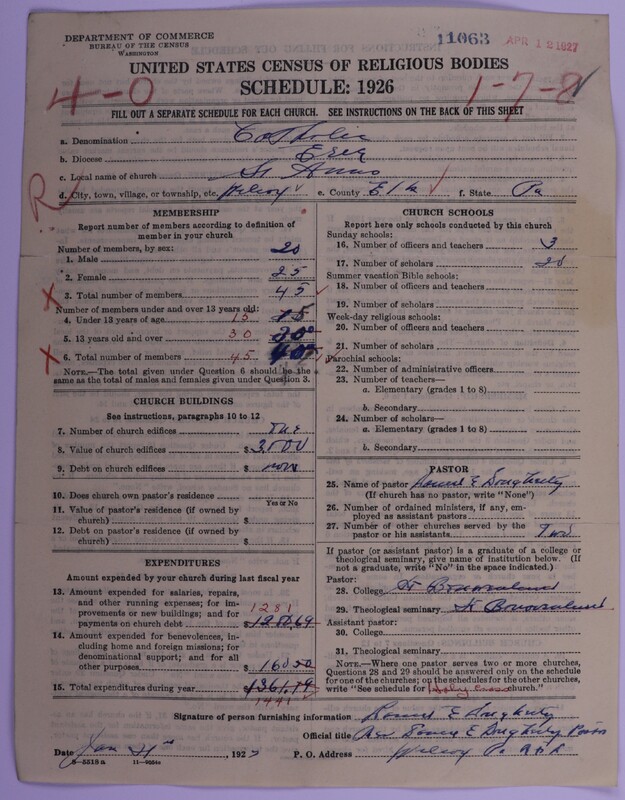 DEPARTMENT OF COMMERCE
BUREAU OF THE CENSUS
WASHINGTON
11063
APR 12 1927
UNITED STATES CENSUS OF RELIGIOUS BODIES
SCHEDULE: 1926
4-0
1-7-8
FILL OUT A SEPARATE SCHEDULE FOR EACH CHURCH. SEE INSTRUCTIONS ON THE BACK OF THIS SHEET
a. Denomination Catholic
b. Diocese Erie
c. Local name of church St Anns
R
d. City, town, village, or township, etc. Wilcox e. County Elk f. State Pa
MEMBERSHIP
Report number of members according to definition of member in your church
Number of members, by sex:
1. Male 20
2. Female 25
3. Total number of members 45
Number of members under and over 13 years old:
4. Under 13 years of age 15 15
5. 13 years old and over 30
6. Total number of members 45
NOTE.—The total given under Question 6 should be the same as the total of males and females given under Question 3.
CHURCH BUILDINGS
See instructions, paragraphs 10 to 12
7. Number of church edifices One
8. Value of church edifices $ 3500
9. Debt on church edifices $ none
10. Does church own pastor's residence
Yes or No
11. Value of pastor's residence (if owned by church) $
12. Debt on pastor's residence (if owned by church) $
EXPENDITURES
Amount expended by your church during last fiscal year
13. Amount expended for salaries, repairs, and other running expenses; for improvements or new buildings; and for payments on church debt $ 1281
14. Amount expended for benevolences, including home and foreign missions; for denominational support; and for all other purposes $ 160.50
15. Total expenditures during year $
1441
CHURCH SCHOOLS
Report here only schools conducted by this church
Sunday schools:
16. Number of officers and teachers 3
17. Number of scholars 20
Summer vacation Bible schools:
18. Number of officers and teachers
19. Number of scholars
Week-day religious schools:
20. Number of officers and teachers
21. Number of scholars
Parochial schools:
22. Number of administrative officers
23. Number of teachers—
a. Elementary (grades 1 to 8)
b. Secondary
24. Number of scholars—
a. Elementary (grades 1 to 8)
b. Secondary
PASTOR
25. Name of pastor E Dougherty
(If church has no pastor, write "None")
26. Number of ordained ministers, if any, employed as assistant pastors
27. Number of other churches served by the pastor or his assistants Two
If pastor (or assistant pastor) is a graduate of a college or theological seminary, give name of institution below. (If not a graduate, write "No" in the space indicated.)
Pastor:
28. College St Bonaventure
29. Theological seminary St Bonaventure
Assistant pastor:
30. College
31. Theological seminary
NOTE.—Where one pastor serves two or more churches, Questions 28 and 29 should be answered only on the schedule for one of the churches; on the schedules for the other churches, write "See schedule for Holy Cross church."
Signature of person furnishing information E Dougherty
Official title Rev E Dougherty Pastor
Date Jan 1927 P. O. Address Wilcox Pa
8—5518 a